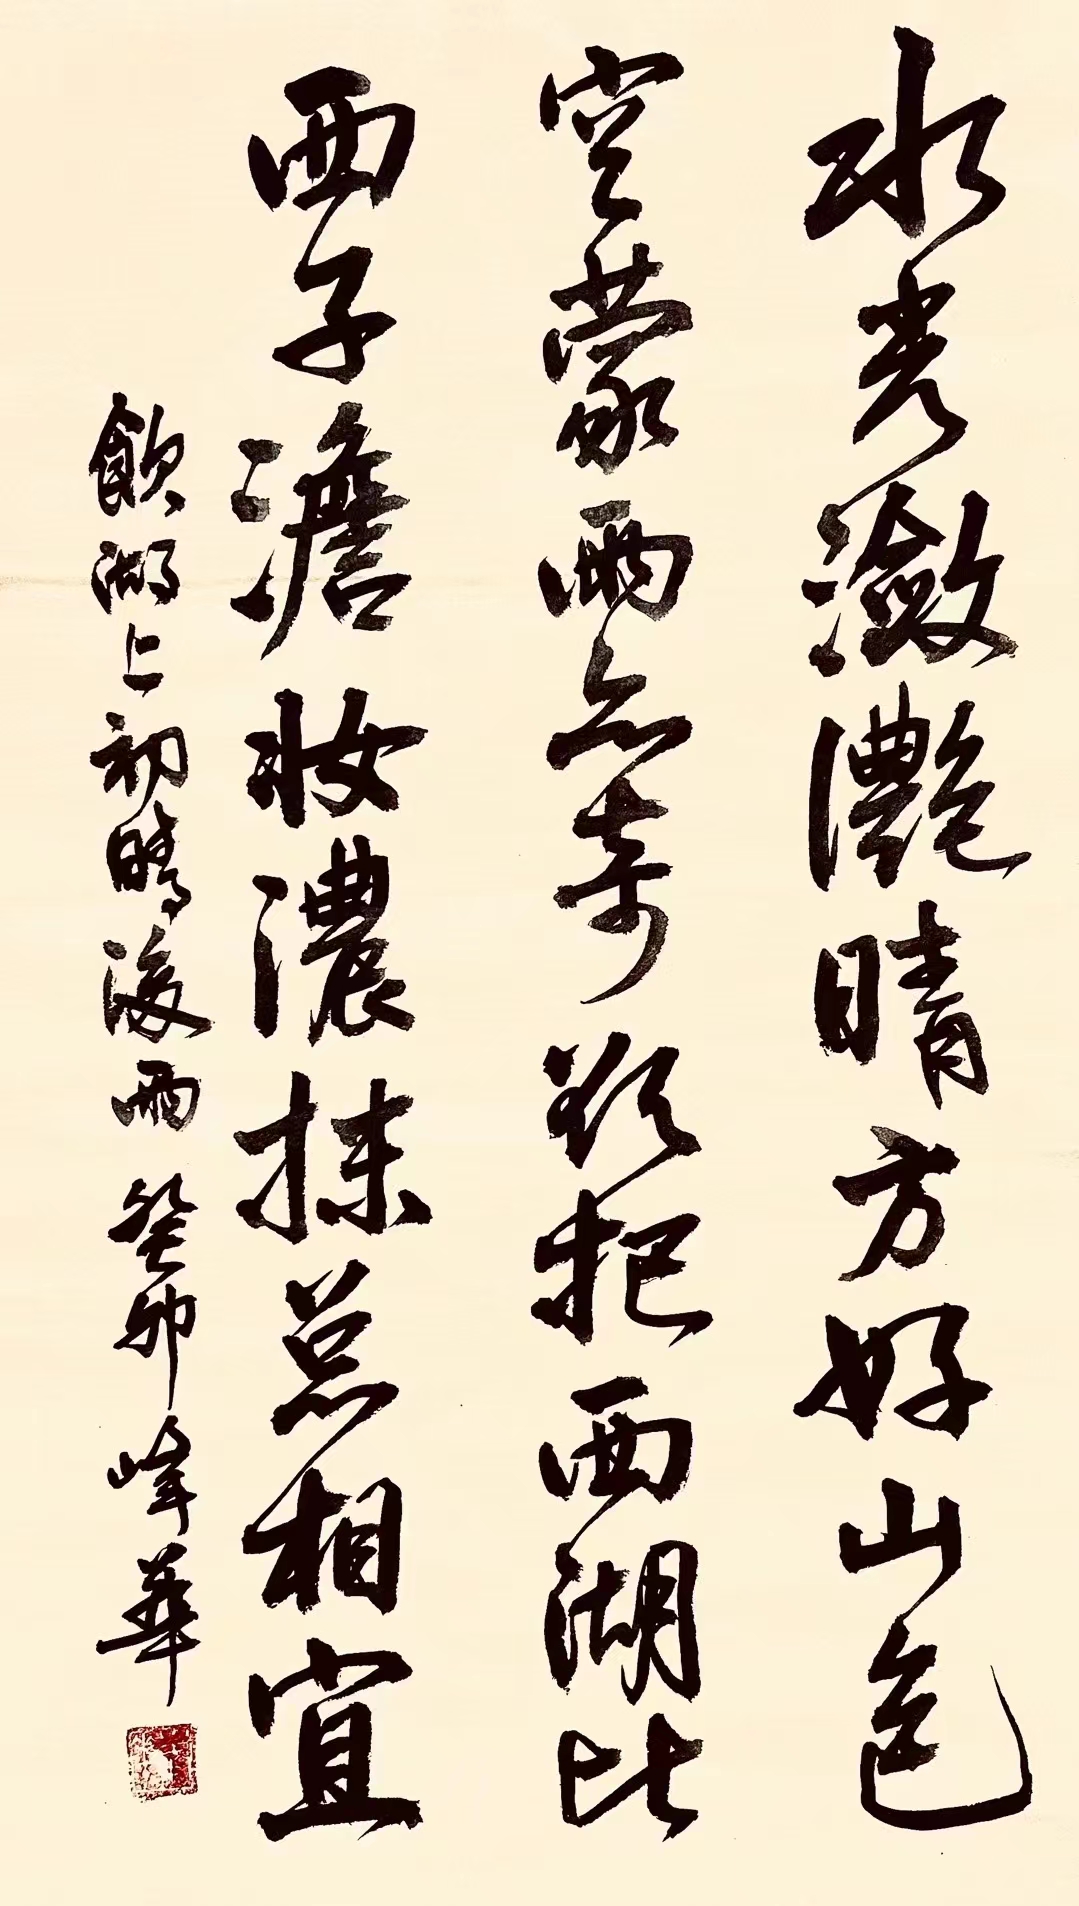 水光潋滟晴方好山色
空蒙雨亦奇欲把西湖比
西子澹妝濃抹总相宜
飲湖上初晴後雨 癸卯 峰華